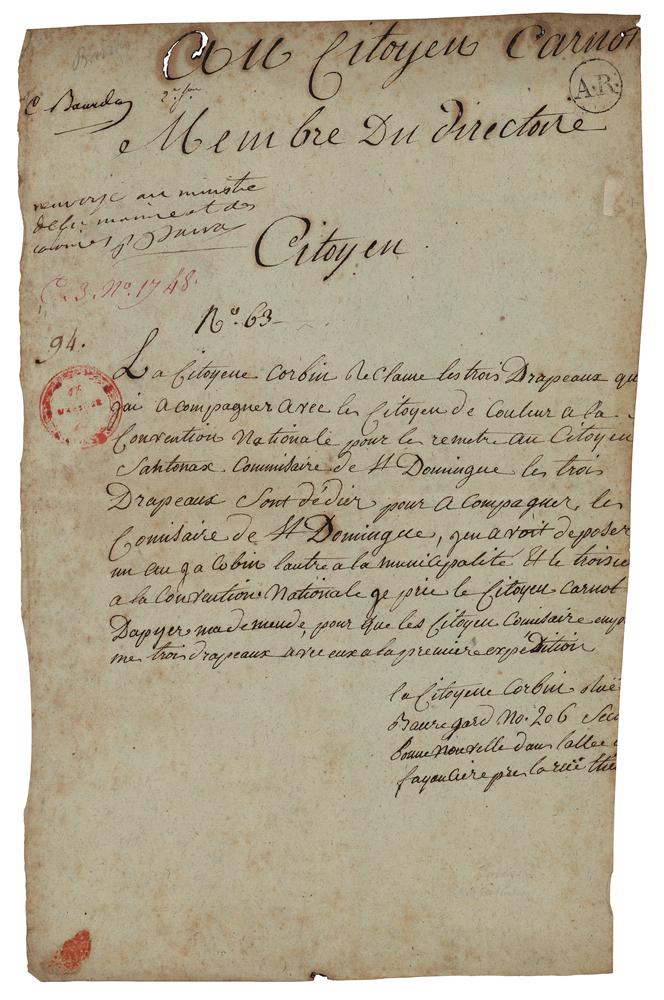 Au Citoyen Carnot
A.R.
C Bourdon
2e
Membre Du directoire
renvoyé au ministre
de la marine et des
colonies
Citoyen
C. 3. No. 1748.
No. 63
94.
La Citoyene Corbin Reclame les trois Drapeaux qu
jai acompagner avec les Citoyen de Couleur a la
Convention Nationale pour les remetre au Citoyen
Sahtonax Commisaire de St Domingue les trois
Drapeaux sont dédier pour acompagner, les
Comisaire de St Domingue, jen avoit deposer
un au jacobin lautre a la municipalité et le troisie
a la Convention Nationale je prie le Citoyen Carnot
Dapyer ma demende, pour que les Citoyen Comisaire empo
me trois drapeaux avec eux a la premiere expédition
la Citoyene Corbin Ruë
Bauregard No. 206 Sec
bonne nouvelle dans lallee
fayancière pres la ruë